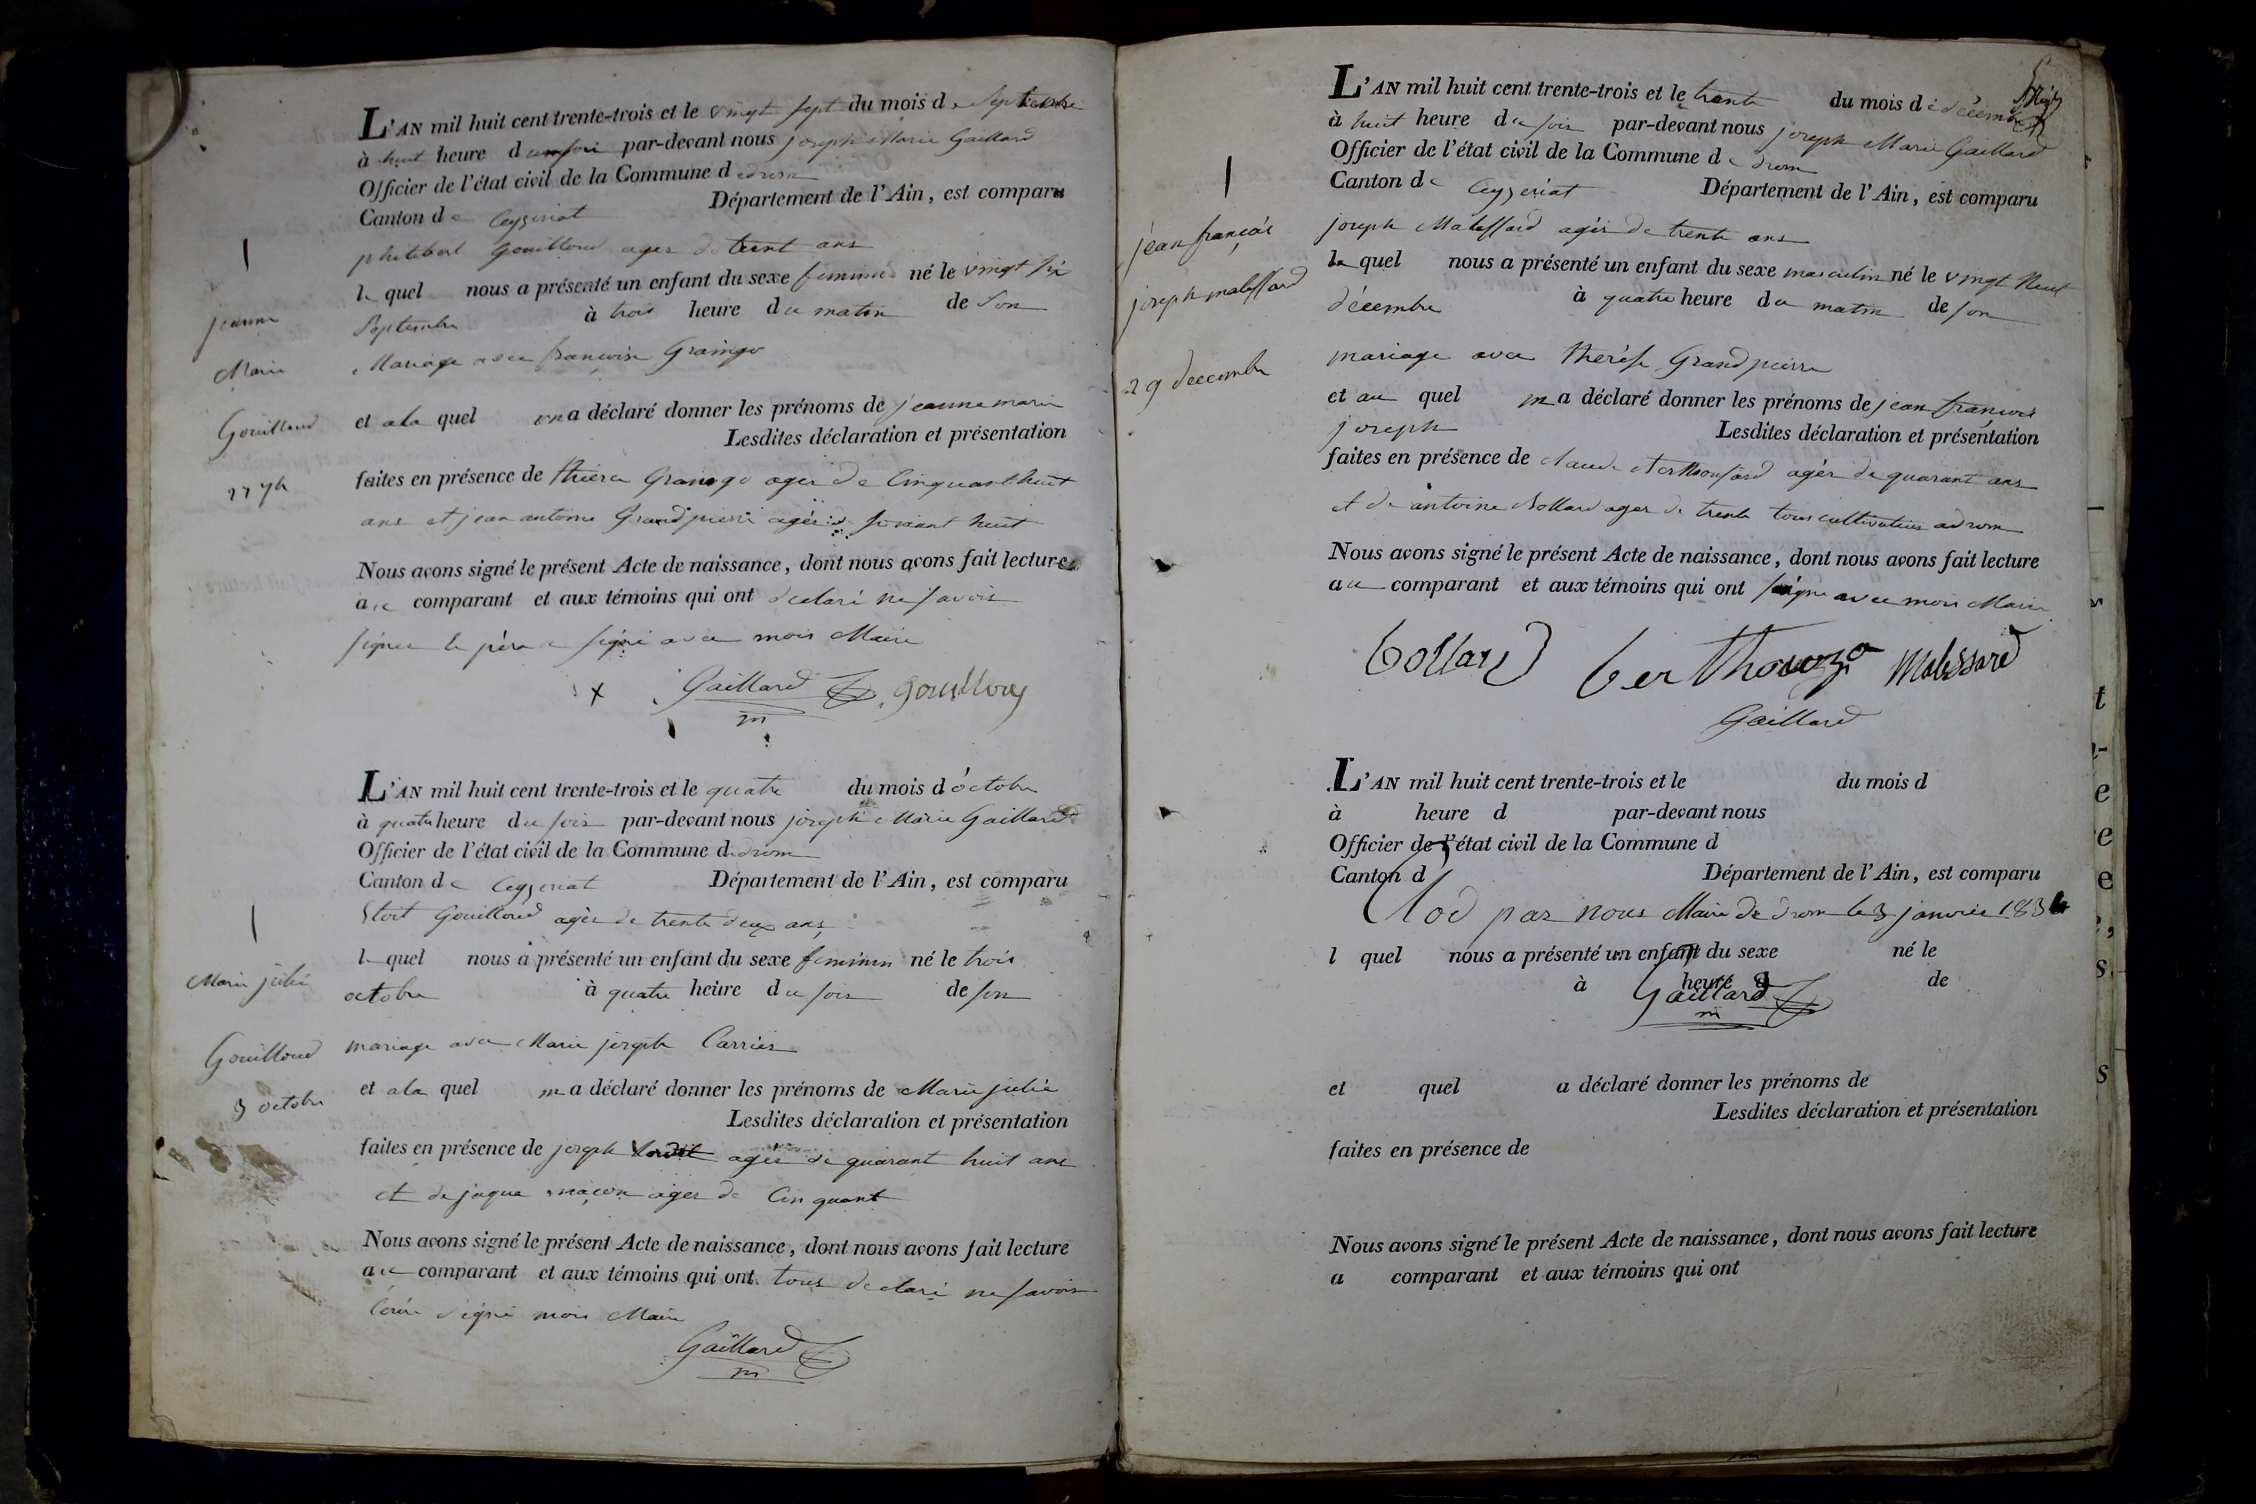 L'AN mil huit cent trente-trois et le vingt sept du mois de Septembre
à huit heure du soir par-devant nous joseph Marie Gaillard
Officier de l'état civil de la Commune de drom
Canton de Ceyzeriat Département de l'Ain, est comparu
philibert Gouilloud ager de trent ans
le quel nous a présenté un enfant du sexe feminin né le vingt six
Septembre à trois heure du matin de Son
Mariage avec françoise Graingo
et a la quel on a déclaré donner les prénoms de jeanne marie
Lesdites déclaration et présentation
faites en présence de Graingo ager de Cinquant huit
ans et jean antoine Grandpierre agér de soixant huit
Nous avons signé le présent Acte de naissance, dont nous avons fait lecture
au comparant et aux témoins qui ont declaré ne savoir
signer le père a signé avec mois Maire
Gaillard gouilloud
m
jeanne
Marie
Gouilloud
L'AN mil huit cent trente-trois et le quatre du mois d'octobre
à quatre heure du soir par-devant nous joseph Marie Gaillard
Officier de l'état civil de la Commune de drom
Canton de Ceyzeriat Département de l'Ain, est comparu
Gouilloud agér de trente deux ans
le quel nous a présenté un enfant du sexe feminin né le trois
octobre à quatre heure du soir de son
mariage avec Marie joseph Carrier
et a la quel on a déclaré donner les prénoms de Marie julie
Lesdites déclaration et présentation
faites en présence de joseph ager de quarant huit ans
et de jaque maçon ager de Cinquant
Nous avons signé le présent Acte de naissance, dont nous avons fait lecture
au comparant et aux témoins qui ont tous declaré ne savoir
signé mois Maire
Gaillard
m
Marie julie
Gouilloud
3 octobre
L'AN mil huit cent trente-trois et le trente du mois de décembre
à huit heure du soir par-devant nous joseph Marie Gaillard
Officier de l'état civil de la Commune de drom
Canton de Ceyzeriat Département de l'Ain, est comparu
joseph Malessard agér de trente ans
le quel nous a présenté un enfant du sexe masculin né le vingt Neuf
décembre à quatre heure du matin de son
mariage avec therèse Grandpierre
et au quel on a déclaré donner les prénoms de jean françois
joseph Lesdites déclaration et présentation
faites en présence de claude agér de quarant ans
et de antoine Bollard ager de trente tous cultivateurs a drom
Nous avons signé le présent Acte de naissance, dont nous avons fait lecture
au comparant et aux témoins qui ont signé avec mois Maire
bollard Malessard
Gaillard
jean françois
joseph malessard
29 decembre
L'AN mil huit cent trente-trois et le du mois d
à heure d par-devant nous
Officier de l'état civil de la Commune d
Canton d Département de l'Ain, est comparu
Clod par nous Maire de drom le 3 janvier 1834
l quel nous a présenté un enfant du sexe né le
à heure d de
Gaillard
m
et quel a déclaré donner les prénoms de
Lesdites déclaration et présentation
faites en présence de
Nous avons signé le présent Acte de naissance, dont nous avons fait lecture
a comparant et aux témoins qui ont